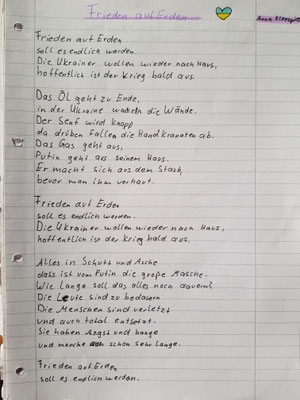 Frieden auf Erden
Anna
Frieden auf Erden
soll es endlich werden.
Die Ukrainer wollen wieder nach Haus,
hoffentlich ist der Krieg bald aus.
Das Öl geht zu Ende,
in der Ukraine wackeln die Wände.
Der Senf wird knapp
da drüben fallen die Handkranaten ab.
Das Gas geht aus,
Putin geht aus seinem Haus.
Er macht sich aus dem Staub,
bevor man ihm verhaut.
Frieden auf Erden
soll es endlich werden.
Die Ukrainer wollen wieder nach Haus,
hoffentlich ist der Krieg bald aus.
Alles in Schutt und Asche
dass ist vom Putin die große Masche.
Wie lange soll das alles noch dauern?
Die Leute sind zu bedauern
Die Menschen sind verletzt
und auch total entsetzt.
Sie haben Angst und bange
und manche schon sehr lange.
Frieden auf Erden
soll es endlich werden.